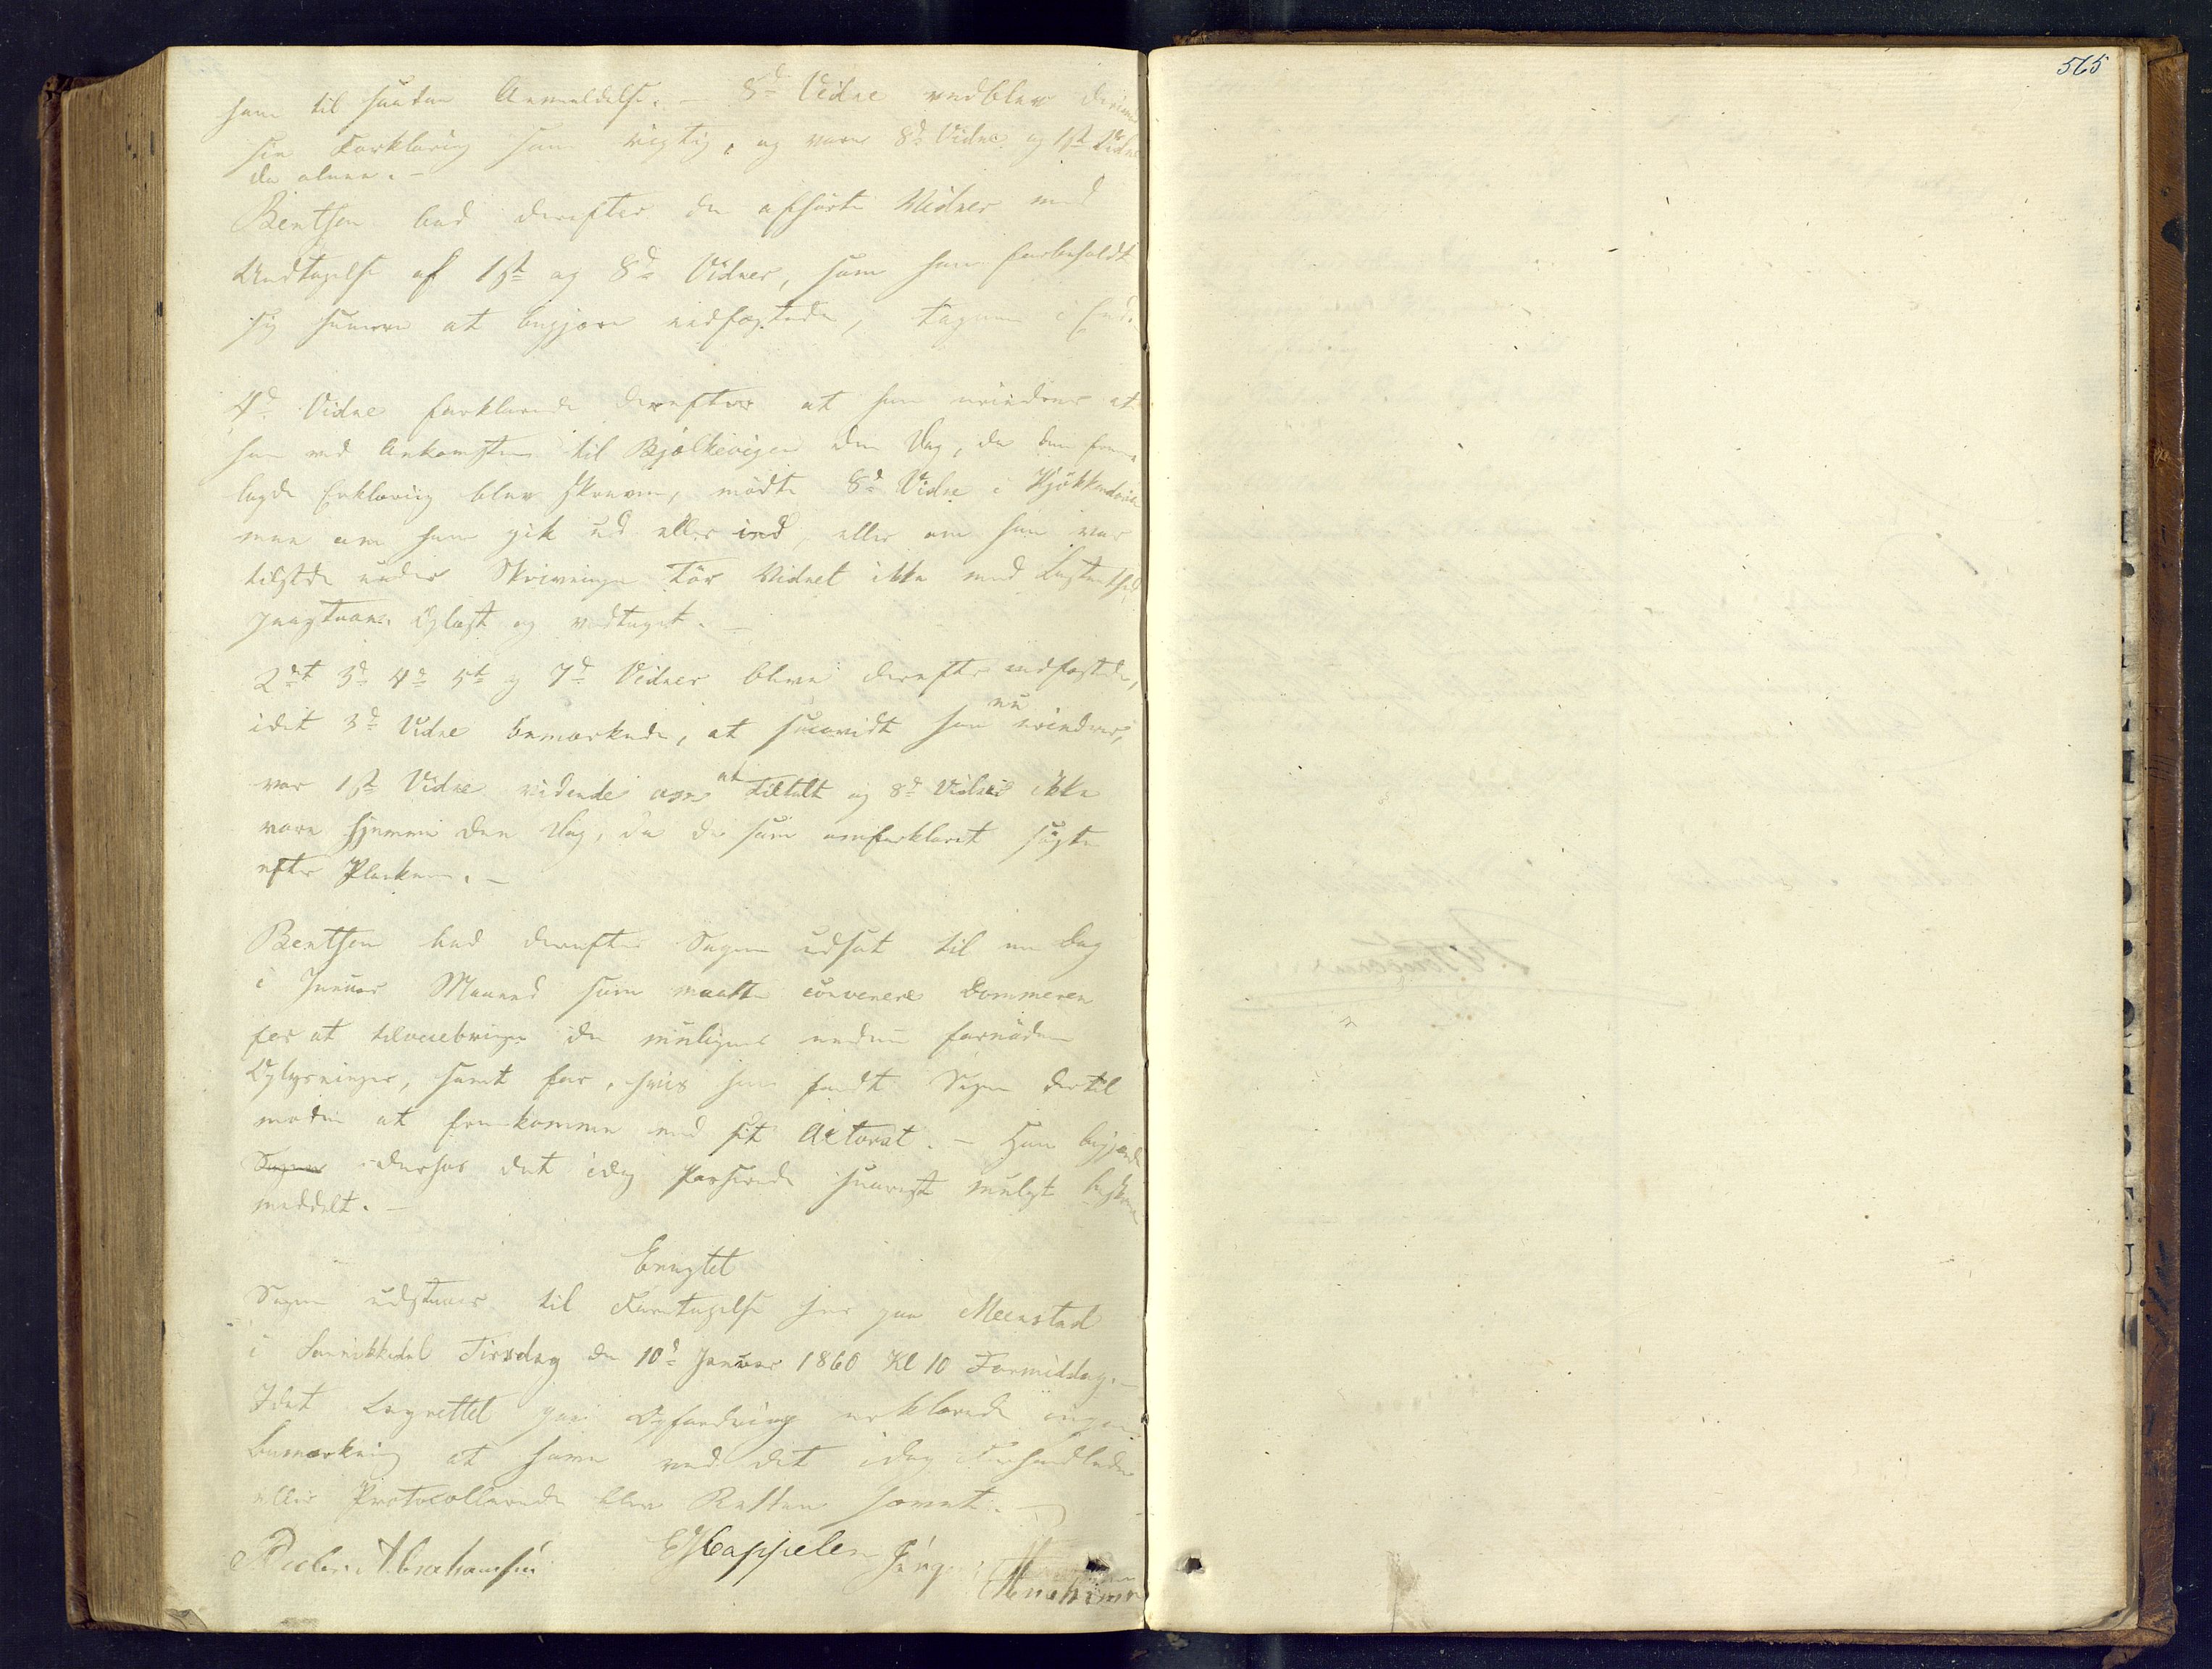 565
ham til saadan Anmeldelse. — 8d Vidne vedblev derimod
sin Forklaring som rigtig, og vare 8de Vidne og 1ste Vidne
da alene. —
Bentsen bad derefter de afhørte Vidner med
Undtagelse af 1ste og 8de Vidner, som han forbeholdt
sig senere at begjære edfæstede, tagne i Eed.
4de Vidne forklarede derefter at han erindrer at
han ved Ankomsten til Bjælkevigen den Dag, da den frem
lagde Erklæring blev skreven, mødte 8de Vidne i Kjøkkendøren
men om han gik ud eller ind, eller om han var
tilstede under Skrivningen tør Vidnet ikke med Bestemthed
paastaae. Oplæst og vedtaget. —
2det 3de 4de 5te og 7de Vidner bleve derefter edfæstede,
idet 3de Vidne bemærkede, at saavidt han nu erindrer,
var 1ste Vidne vidende om at Tiltalte og 8de Vidne ikke
vare hjemme den Dag, da de som omforklaret søgte
efter Planken. —
Bentsen bad derefter Sagen udsat til en Dag
i Januar Maaned som maatte convenere Dommeren
for at tilveiebringe de muligens endnu fornødne
Oplysninger, samt for, hvis han fandt Sagen dertil
moden at fremkomme med sit Actorat. — Han begjærede
Sagen derhos det idag Passerede snarest muligt beskreven
meddelt. —
Eragtet
Sagen udstaaer til Foretagelse her paa Meenstad
i Sannikedal Tirsdag den 10de Januar 1860 Kl 10 Formiddag. —
Idet Lagrettet paa Opfordring erklærede ingen
Bemærkning at have ved det idag Forhandlede
eller Protocollerede blev Retten hævet. —
Peder Abrahamsen Cappelen